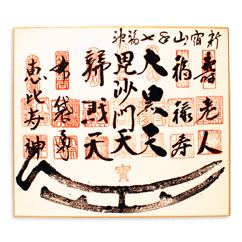 新宿山ノ手七福神
壽老人
福禄寿
大黒天
毘沙門天
辯財天
布袋尊
恵比寿神
寶